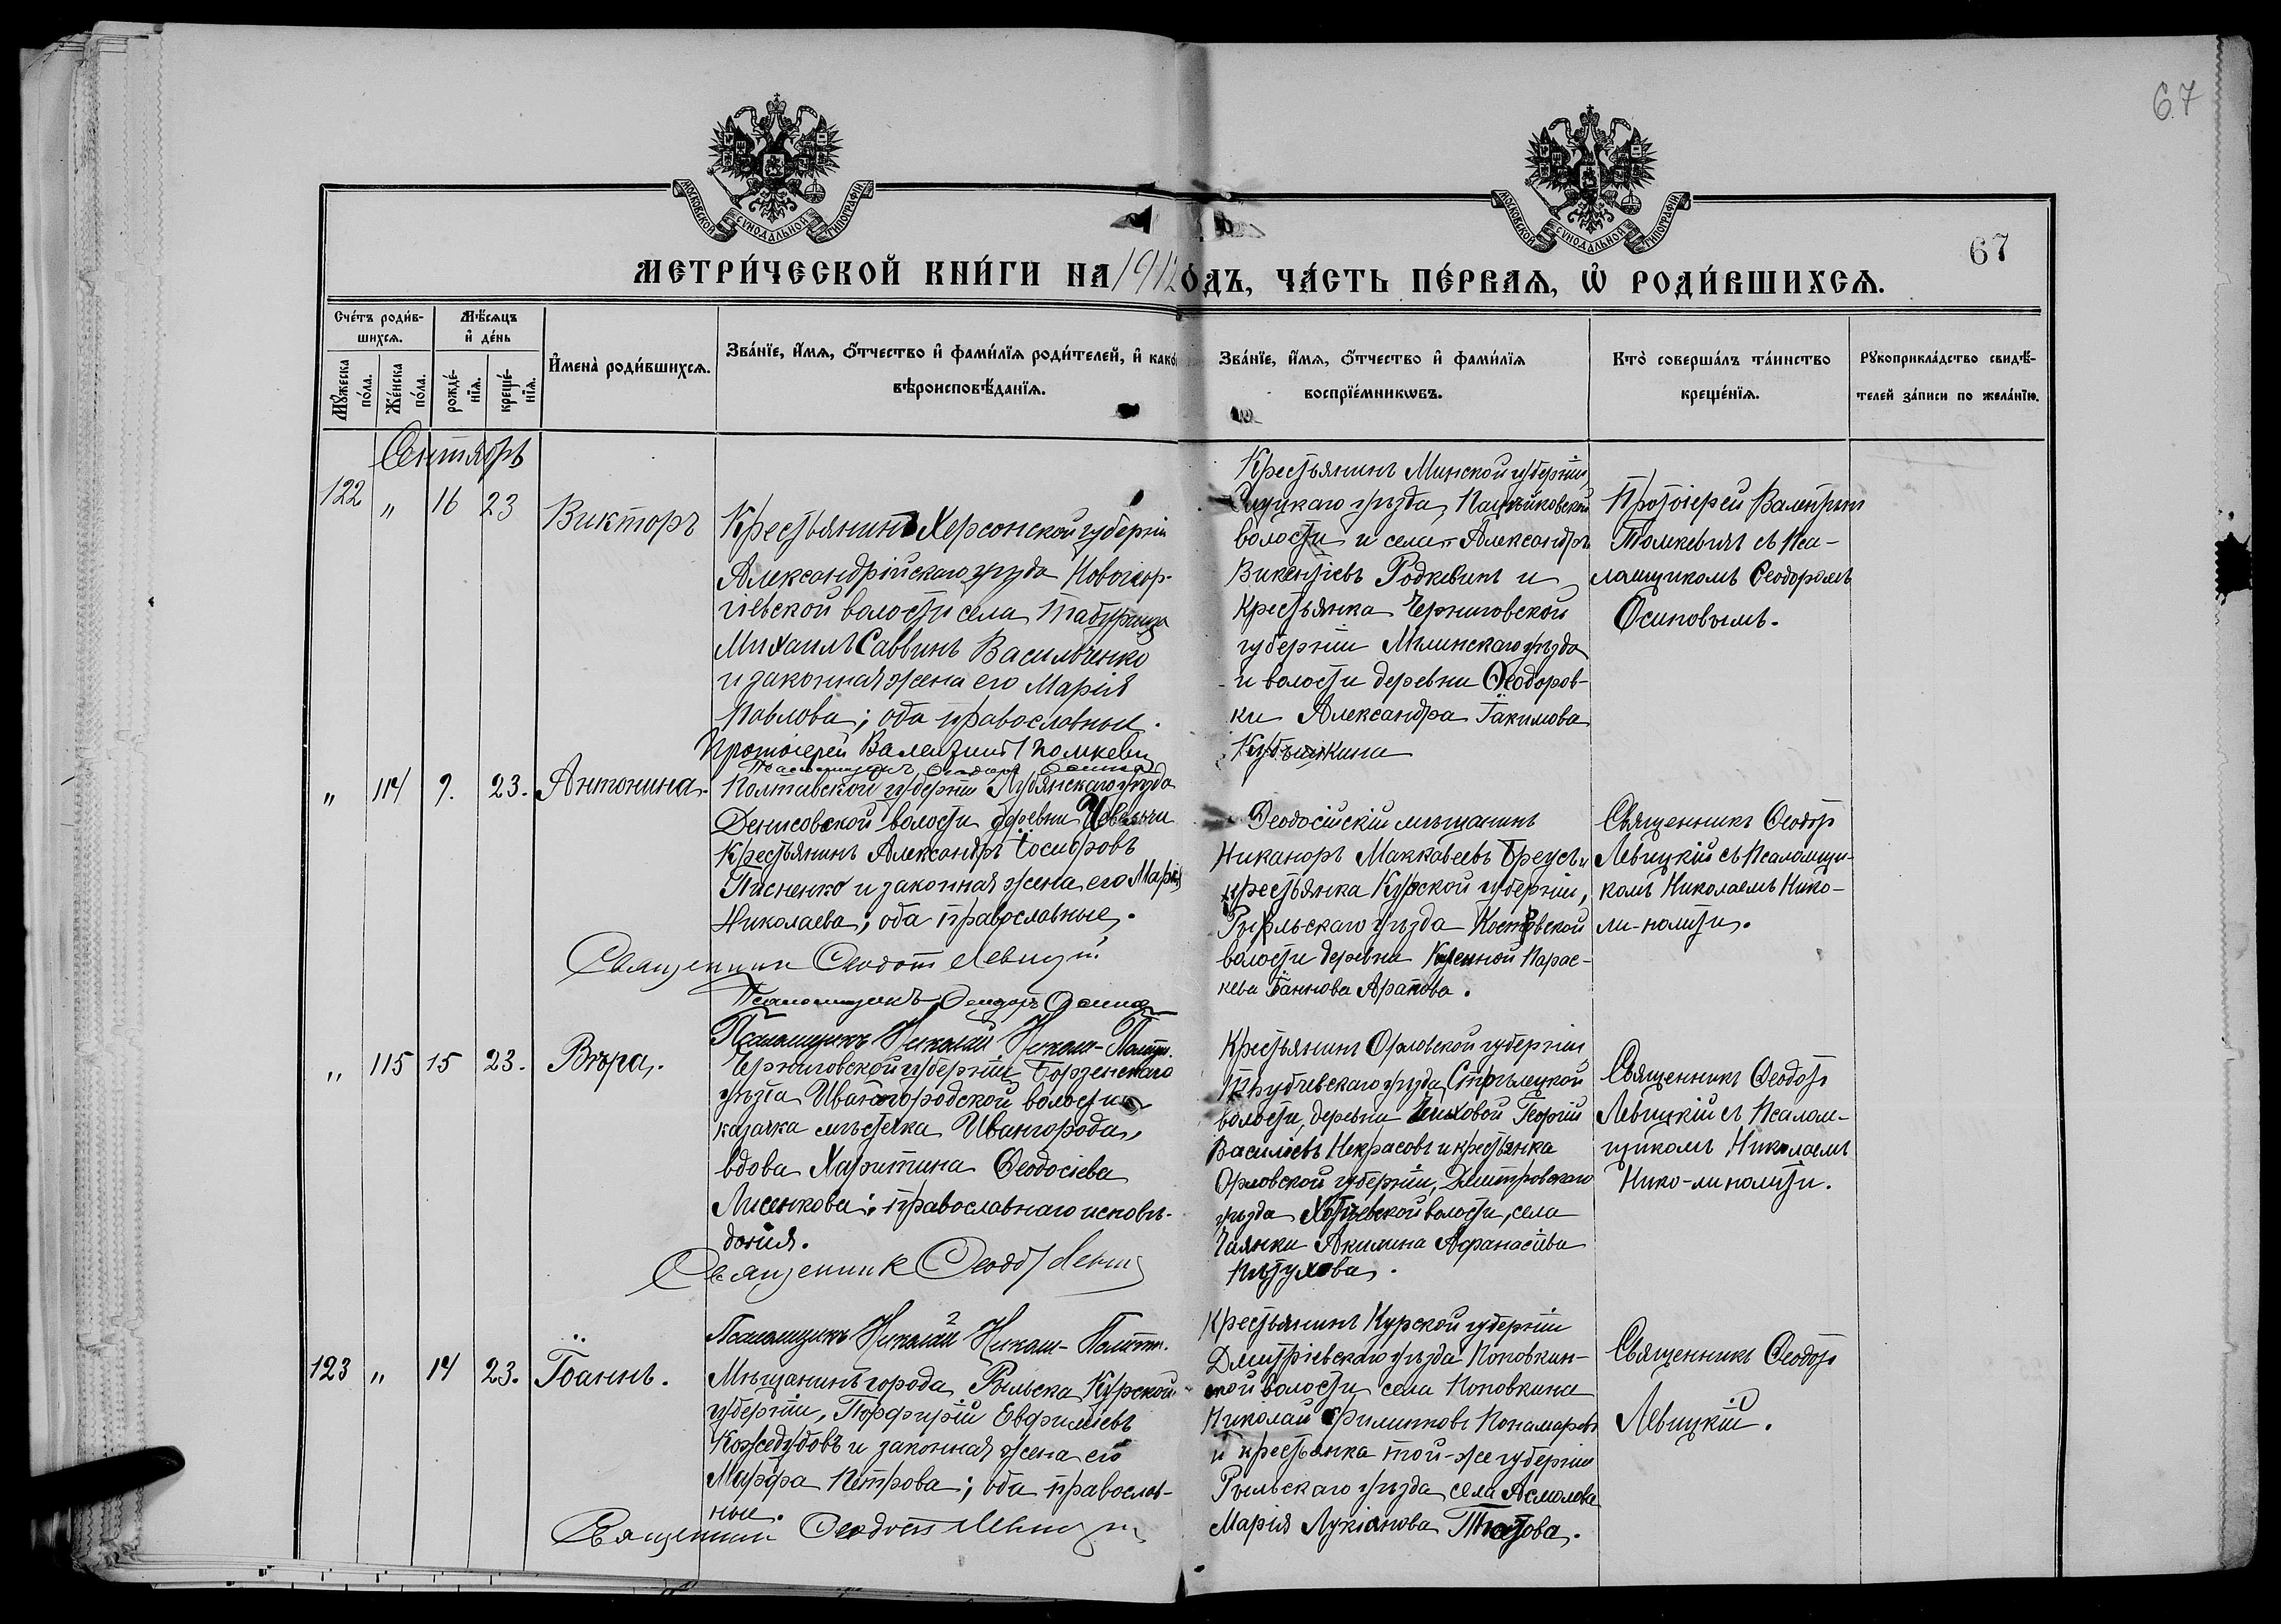 67
МОСКОВСКОЙ СѴНОДАЛЬНОЙ ТИПОГРАФІИ
МОСКОВСКОЙ СѴНОДАЛЬНОЙ ТИПОГРАФІИ
67
МЕТРИ́ЧЕСКОЙ КНИ́ГИ НА 1912 ОДЪ, ЧА́СТЬ ПЕ́РВАѦ, Ѡ РОДИ́ВШИХСѦ.
Сче́тъ роди́в-
шихсѧ.
Мꙋ́жеска по́ла.
Же́нска по́ла.
Мѣ́сѧцъ
и҆ де́нь
рожде́-
нїѧ.
креще́-
нїѧ.
И҆мена̀ роди́вшихсѧ.
Зва́нїе, и҆́мѧ, ѻ҆́тчество и҆ фами́лїѧ роди́телей, и҆ како́
вѣроисповѣ́данїѧ.
Зва́нїе, и҆́мѧ, ѻ҆́тчество и҆ фами́лїѧ
воспрїе́мникѡвъ.
Кто̀ соверша́лъ та́инство
креще́нїѧ.
Рꙋкоприкла́дство свидѣ́-
телей за́писи по жела́нїю.
Сентябрь
122 " 16 23 Викторъ
Крестьянинъ Херсонской губерніи
Александрійскаго уѣзда Новогеор-
гіевской волости села Табурища
Михаилъ Саввинъ Васильченко
и законная жена его Марія
Павлова; оба православные.
Протоіерей Валентинъ Томкевич
Псаломщикъ Ѳеодоръ Осипов
Крестьянинъ Минской губерніи,
Слуцкаго уѣзда,
волости и села Александръ
Викентіевъ Родкевичъ и
крестьянка Черниговской
губерніи Мглинскаго уѣзда
и волости деревни Ѳеодоров-
ки Александра Іакимова
Кубышкина
Протоіерей Валентинъ
Томкевичъ съ Пса-
ломщикомъ Ѳеодоромъ
Осиповымъ.
" 114 9. 23. Антонина.
Полтавской губерніи Лубянскаго уѣзда
Денисовской волости деревни
Крестьянинъ Александръ
Писненко и законная жена его Марія
Николаева; оба православные.
Священник Ѳеодот Левицкій
Псаломщикъ Ѳеодоръ Осипов
Псаломщикъ Николай Николи-Полити.
Ѳеодосійскій мѣщанинъ
Никаноръ Маккавеевъ Бреусъ и
крестьянка Курской губерніи,
Рыльскаго уѣзда
волости деревни Парас-
кева Іаннова Арапова.
Священникъ Ѳеодотъ
Левицкій съ Псаломщи-
комъ Николаемъ Нико-
ли-полити.
" 115 15 23. Вѣра.
Черниговской губерніи Борзенскаго
уѣзда Ивангородской волости
казачка мѣстечка Ивангорода,
вдова Харитина Ѳеодосіева
Лисенкова; православнаго исповѣ-
данія.
Священник Ѳеодот Левиц
Псаломщикъ Николай Николи-Полити.
Крестьянинъ Орловской губерніи
Трубчевскаго уѣзда, Стрѣлецкой
волости, деревни Георгій
Василіевъ Некрасовъ и крестьянка
Орловской губерніи, Дмитровскаго
уѣзда волости, села
Чаянки Акилина Афанасіева
Пѣтухова.
Священникъ Ѳеодотъ
Левицкій съ Псалом-
щикомъ Николаемъ
Нико-ли-полити.
123 " 14 23. Іоаннъ.
Мѣщанинъ города Рыльска Курской
губерніи, Порфирій Евфиміевъ
Кожедубовъ и законная жена его
Марфа Петрова; оба православ-
ные.
Священник Ѳеодотъ Левицкій
Крестьянинъ Курской губерніи
Дмитріевскаго уѣзда Поповкин-
ской волости села Поповкина
Николай Филипповъ Понамаревъ
и крестьянка той-же губерніи
Рыльскаго уѣзда села Асмолова
Марія Лукіанова
Священникъ Ѳеодотъ
Левицкій.